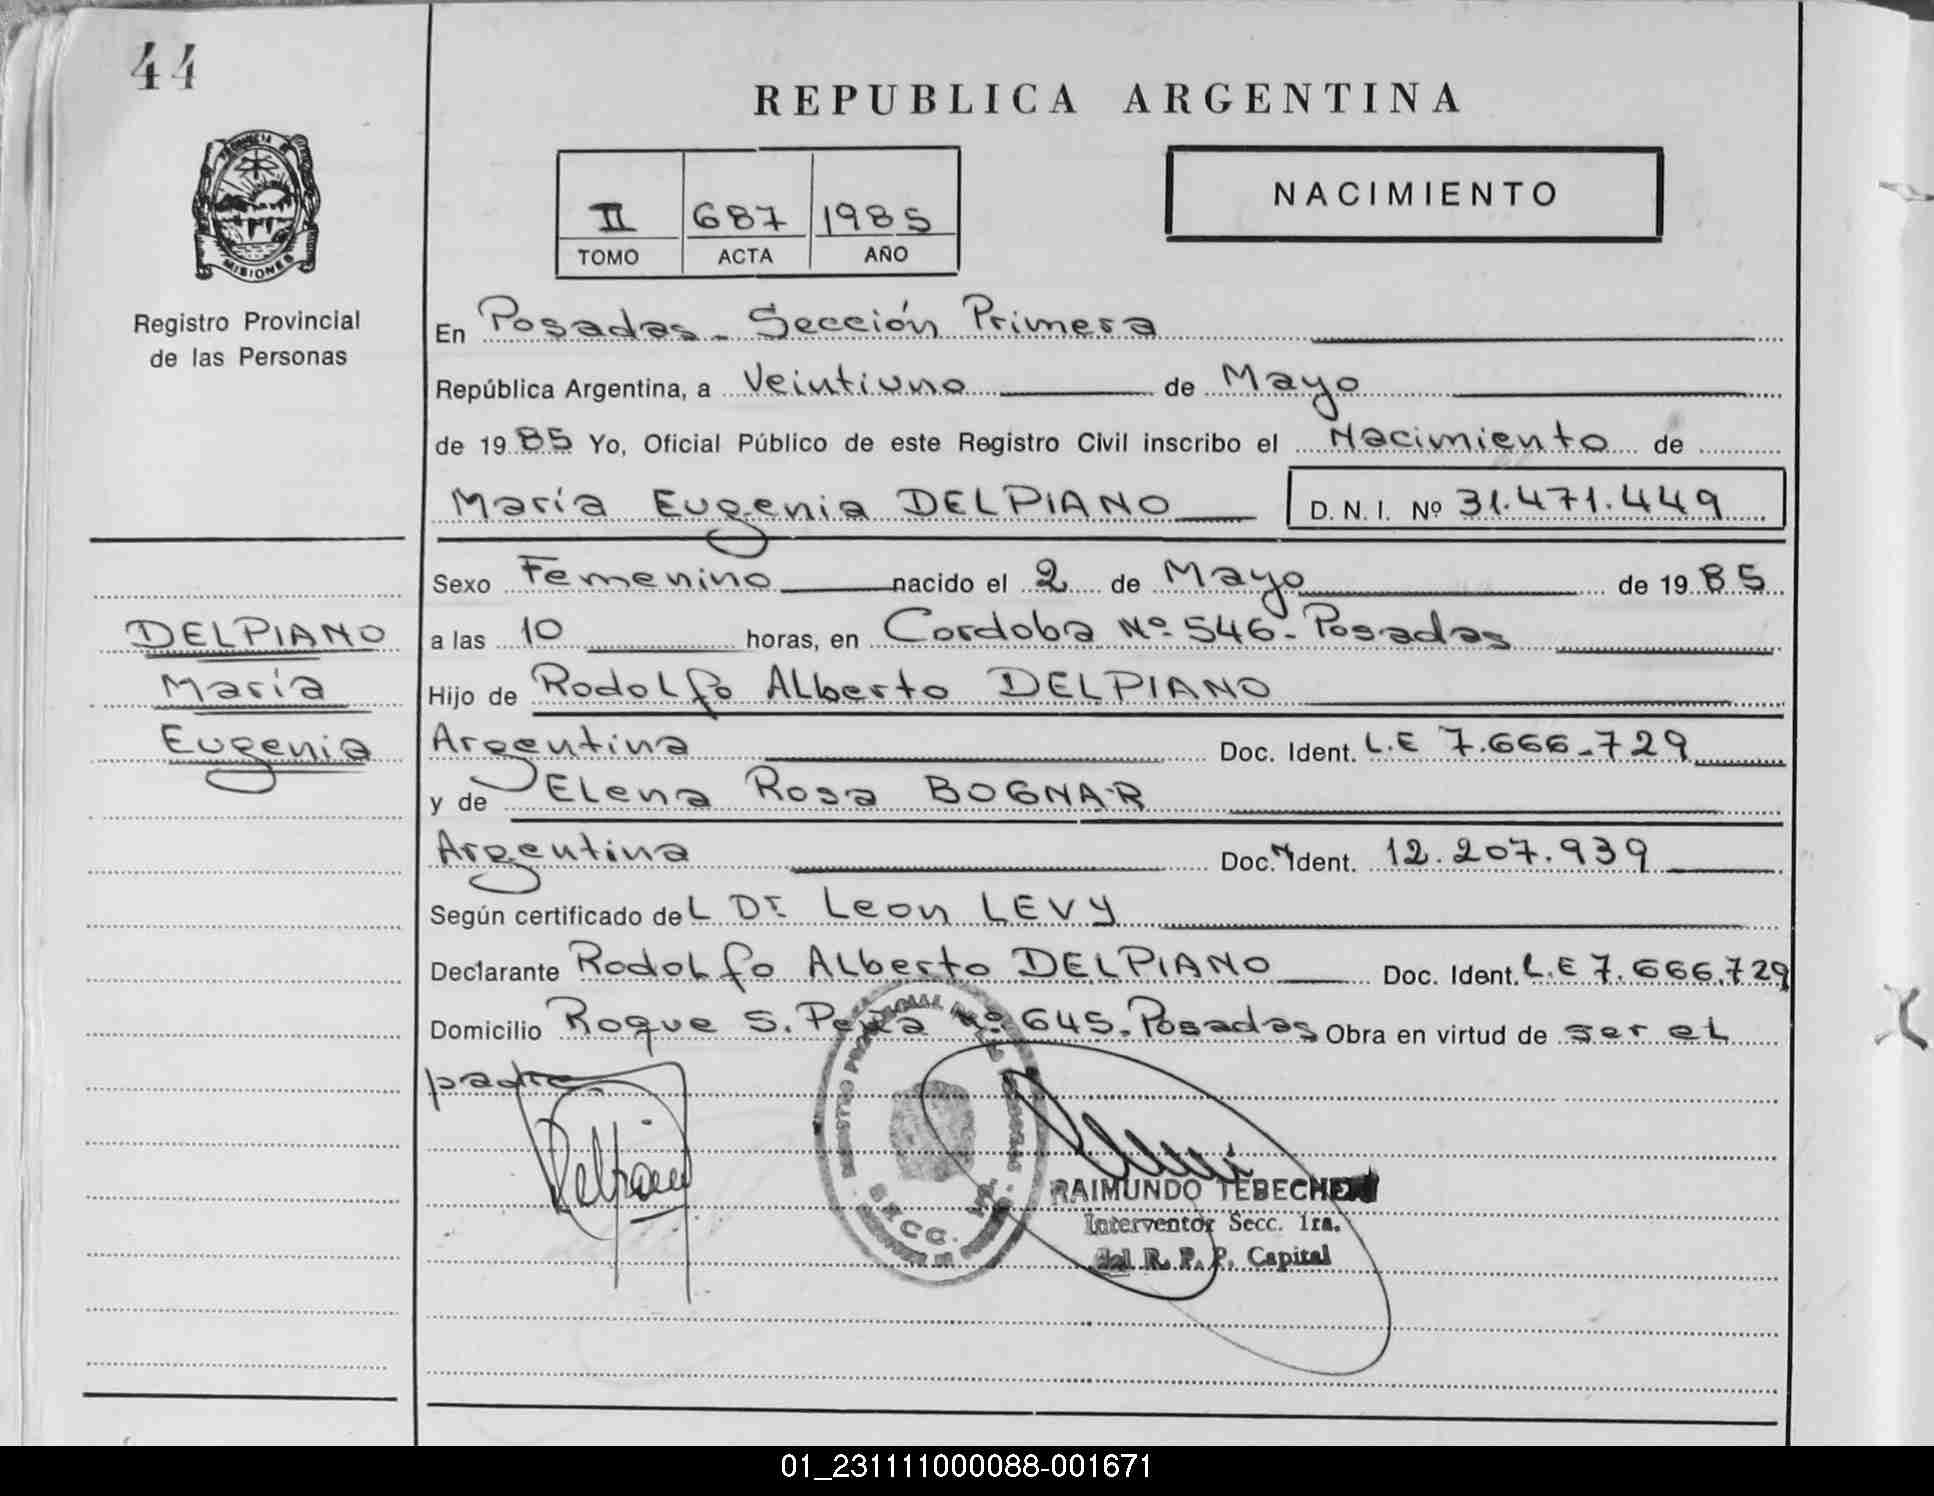 44
REPUBLICA ARGENTINA
PROVINCIA DE
MISIONES
Registro Provincial
de las Personas
II 687 1985
TOMO ACTA AÑO
NACIMIENTO
En Posadas - Sección Primera
República Argentina, a Veintiuno de Mayo
de 1985 Yo, Oficial Público de este Registro Civil inscribo el Nacimiento de
María Eugenia DELPIANO D. N. I. Nº 31.471.449
Sexo Femenino nacido el 2 de Mayo de 1985
a las 10 horas, en Cordoba Nº 546 - Posadas
Hijo de Rodolfo Alberto DELPIANO
Argentina Doc. Ident. L.E 7.666.729
y de Elena Rosa BOGNAR
Argentina Doc. N Ident. 12.207.939
Según certificado del Dr. Leon LEVY
Declarante Rodolfo Alberto DELPIANO Doc. Ident. L.E 7.666.729
Domicilio Roque S. Peña Nº 645 - Posadas Obra en virtud de ser el
padre
DELPIANO
María
Eugenia
Delpiano
REGISTRO PROVINCIAL DE LAS PERSONAS
SECC.
RAIMUNDO TEBECHERI
Interventor Secc. 1ra.
del R. P. P. Capital
01_231111000088-001671